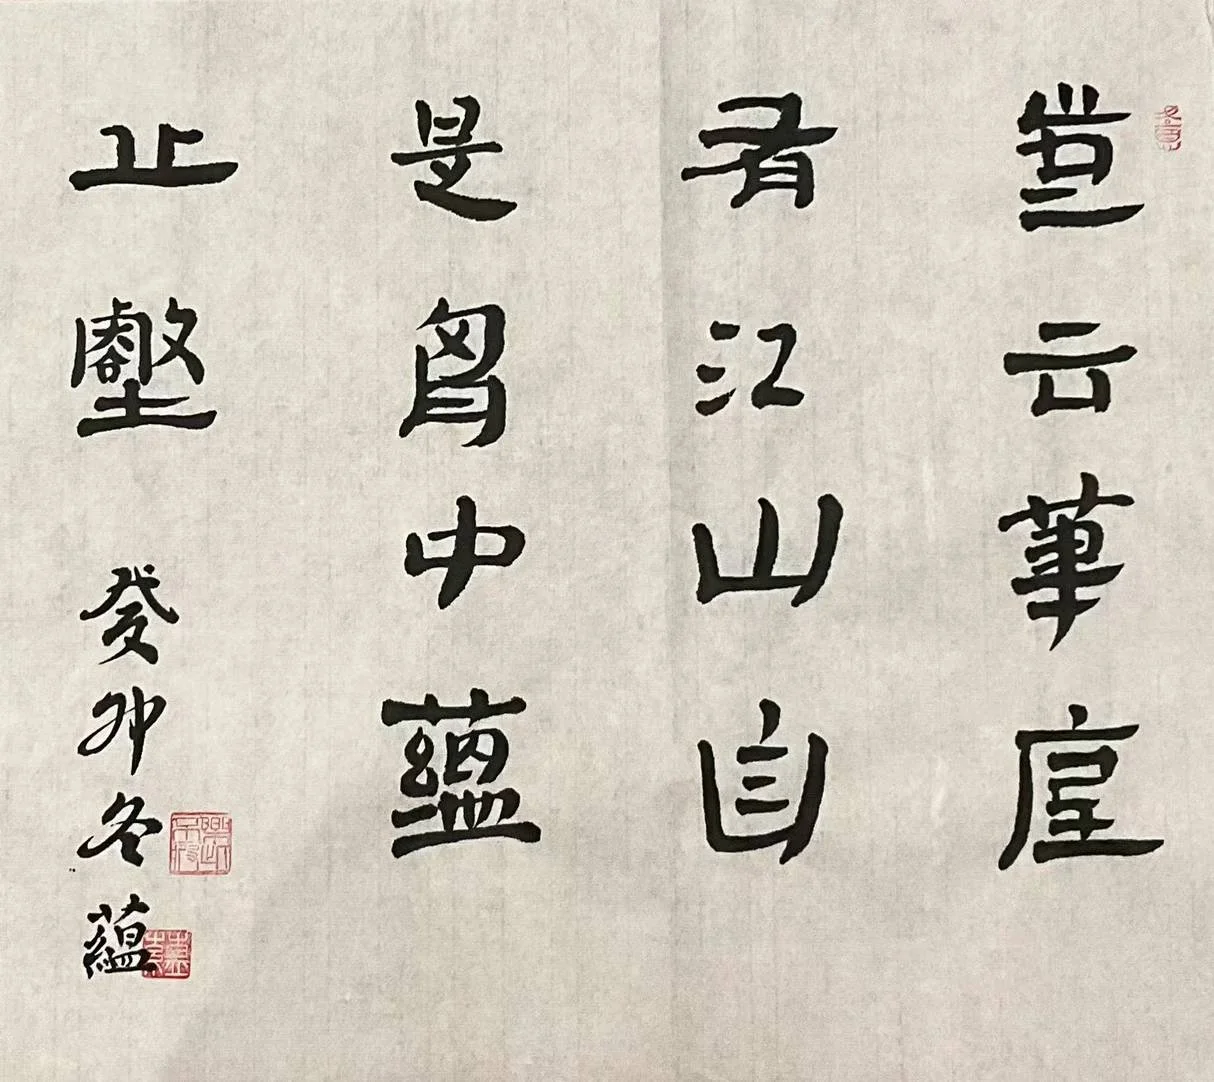 豈云華屋
有江山自
是胷中蘊
丘壑 癸卯冬 蘊